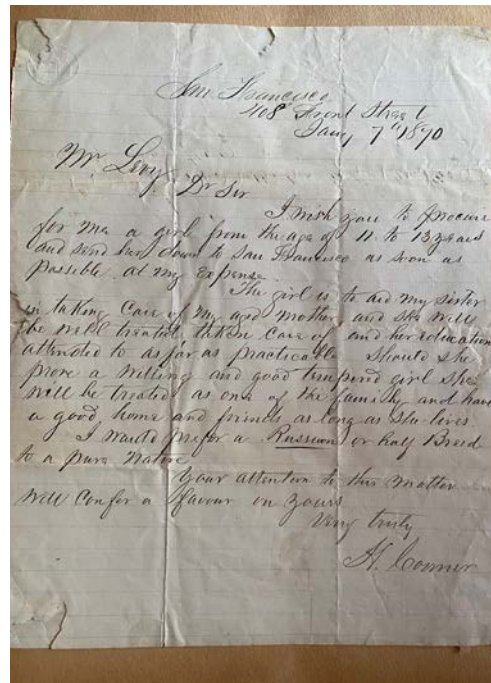 San Francisco
408 Front Street
Jany 7th 1870
Mr Levy Dr Sir
I wish you to procure
for me a girl from the age of 11 to 13 years
and send her down to San Francisco as soon as
possible at my expense.
The girl is to aid my sister
in taking care of my aged mother, and she will
be well treated, taken care of, and her education
attended to as far as practicable. Should she
prove a willing and good tempered girl she
will be treated as one of the family and have
a good home and friends as long as she lives.
I would prefer a Russian or half Breed
to a pure Native
Your attention to this matter
will confer a favour on yours
Very truly
H. Conner